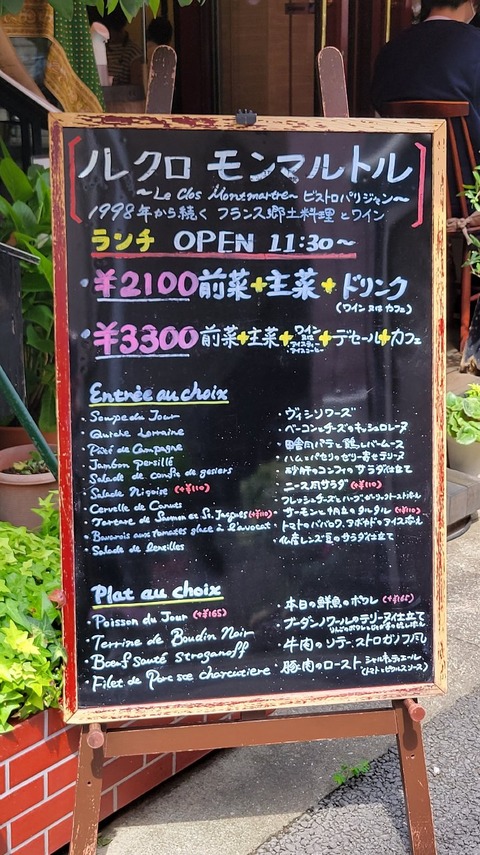 ル クロ モンマルトル
～Le Clos Montmartre ビストロパリジャン～
1998年から続く フランス郷土料理とワイン
ランチ OPEN 11:30～
・¥2100前菜+主菜+ドリンク
(ワイン又はカフェ)
・¥3300前菜+主菜+ワイン又はアイスティーアイスコーヒー+デセール+カフェ
Entrée au choix
・Soupe du Jour ・ヴィシソワーズ
・Quiche Lorraine ・ベーコンとチーズのキッシュロレーヌ
・Pâté de Campagne ・田舎風パテと鶏レバームース
・Jambon persillé ・ハムとパセリのゼリー寄せテリーヌ
・Salade de confit de gesiers ・砂肝のコンフィのサラダ仕立て
・Salade Niçoise (+¥110) ・ニース風サラダ (+¥110)
・Cervelle de Canuts ・フレッシュチーズとハーブ
・Tartare de Saumon et St. Jacques (+¥110) ・サーモンと帆立のタルタル (+¥110)
・Bavarois aux tomates glace à l'avocat ・トマトのババロワ、アボカドのアイス添え
・Salade de lentilles ・仏産レンズ豆のサラダ仕立て
Plat au choix
・Poisson du Jour (+¥165) ・本日の鮮魚のポワレ (+¥165)
・Terrine de Boudin Noir ・ブーダンノワールのテリーヌ仕立て
・Bœuf Sauté Stroganoff ・牛肉のソテーストロガノフ風
・Filet de Porc sce charcutiere ・豚肉のロースト シャルキュティエール
(トマトとピクルスソース)